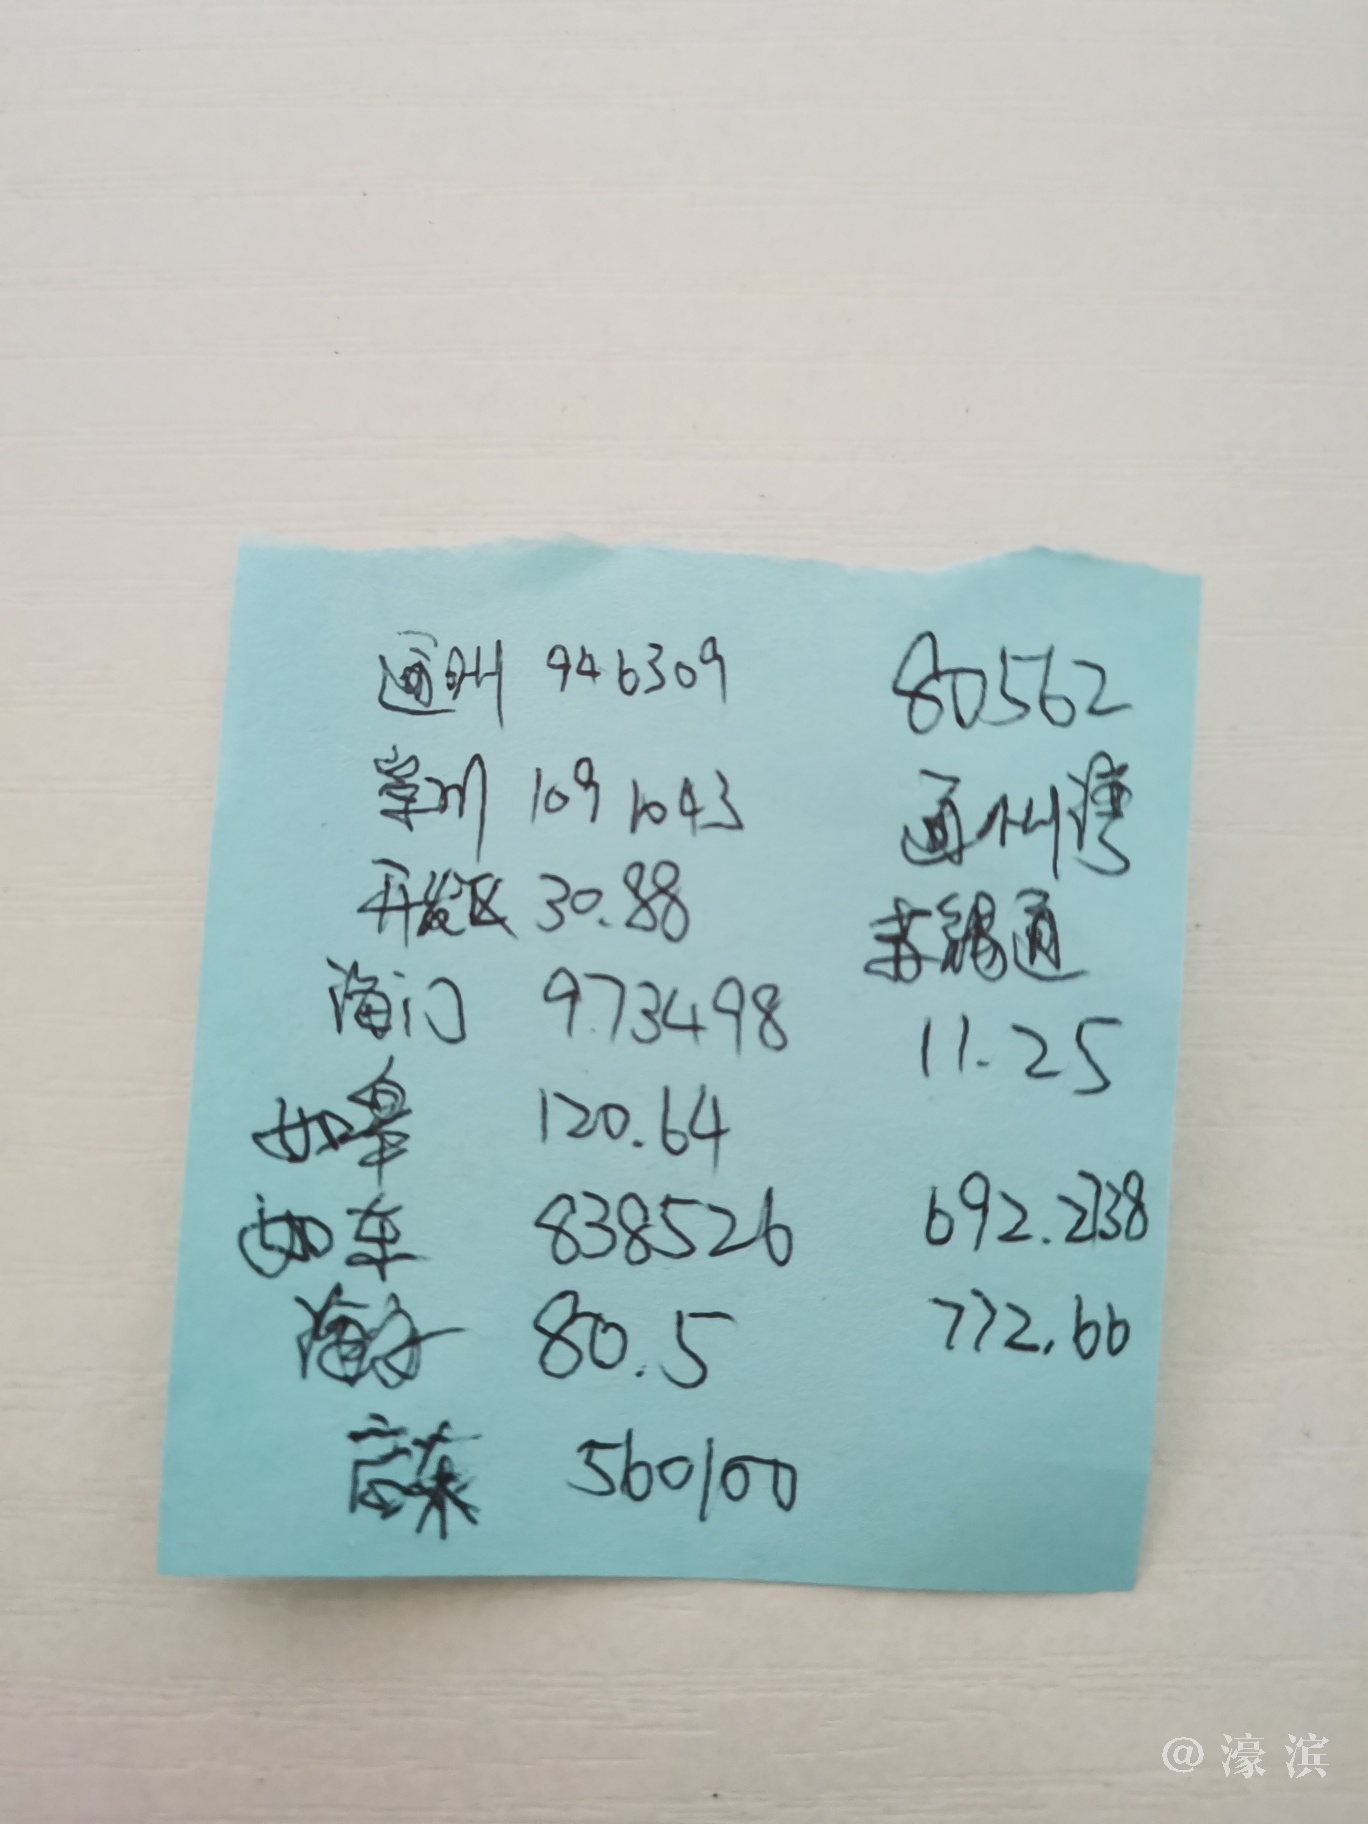 通州 946309
崇川 1091043
开发区 30.88
海门 973498
如皋 120.64
如东 838526
海安 80.5
启东 560100
80562
通州湾
苏锡通
11.25
692.238
772.66
@濠滨